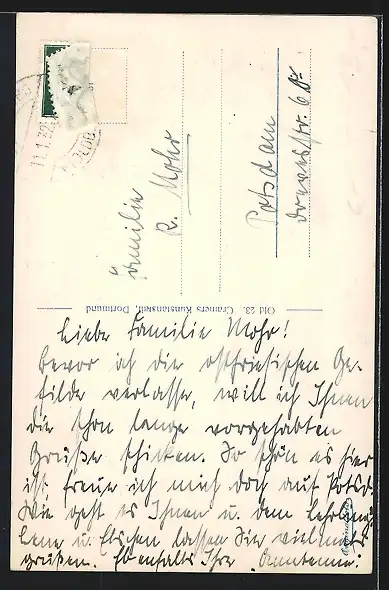 11.1.32
Familie
R. Mohr
Potsdam
Drevesstr. 6
Old 23. Cramers Kunstanstalt, Dortmund
Liebe Familie Mohr!
Bevor ich die ostfriesischen Ge-
filde verlasse, will ich Ihnen
die schon lange vorgehabten
Grüße schicken. So schön es hier
ist freue ich mich doch auf Potsd.
Wie geht es Ihnen u. dem
Lene u. Elschen lassen Sie vielmals
grüßen. Ebenfalls Ihre